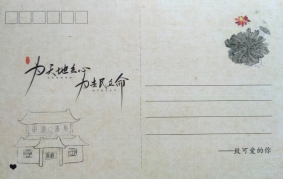 为天地立心
为生民立命
——致可爱的你